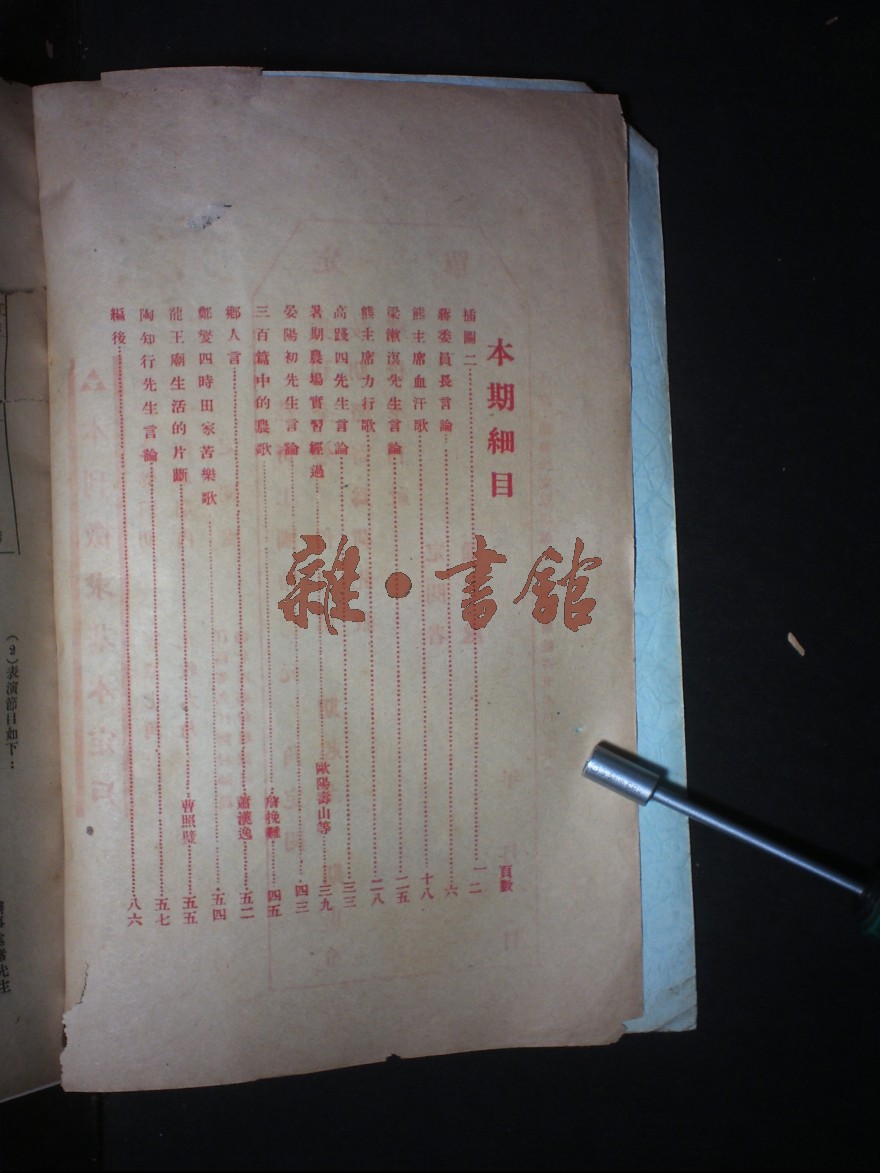 本期細目
頁數
插圖二……一二
蔣委員長言論……六
熊主席血汗歌……十八
梁漱溟先生言論……一五
熊主席力行歌……二八
高踐四先生言論……三三
暑期農場實習經過……歐陽壽山等……三九
晏陽初先生言論……四三
三百篇中的農歌……詹挽難……四五
鄉人言……蕭漢逸……五二
鄭燮四時田家苦樂歌……五四
龍王廟生活的片斷……曹照璧……五五
陶知行先生言論……五七
編後……八六
雜·書館
本刊徵求基本定戶
(2)表演節目如下：
先生